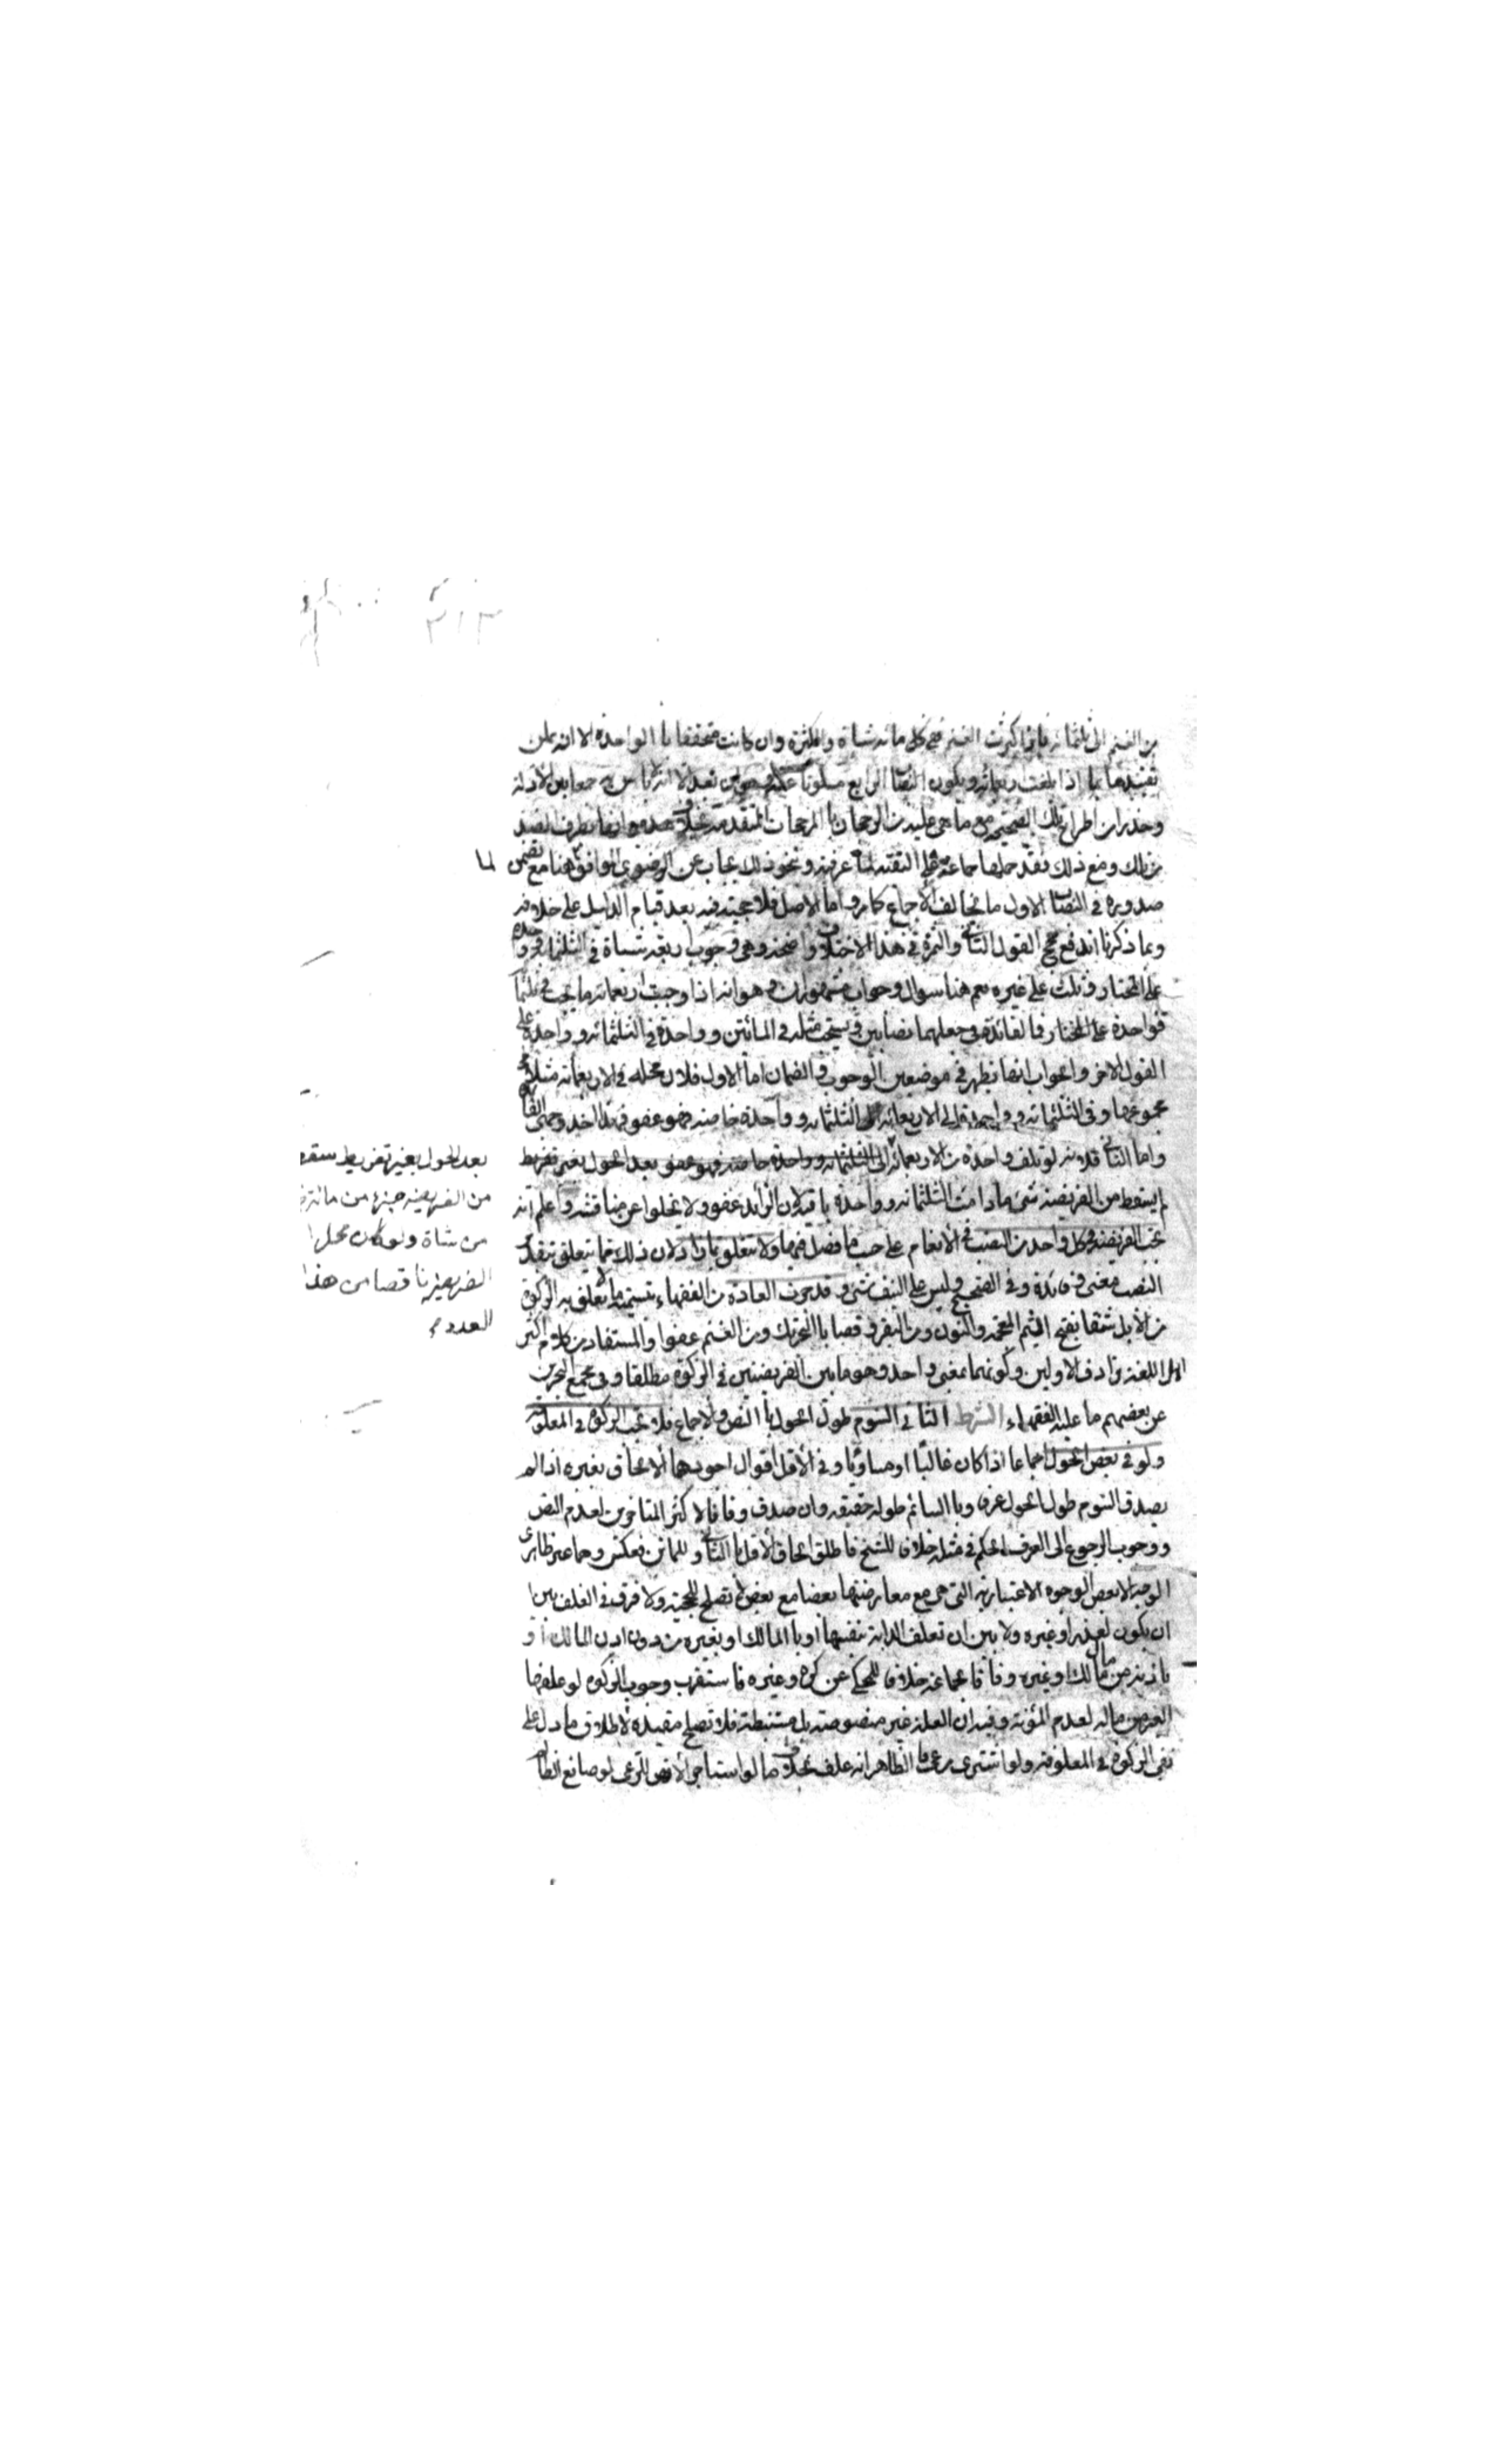 ٣١٣
من الغنم الى ثلثمائه فاذا كثرت الغنم ففى كل مائه شاة والكثرة وان كانت متحققة بالواحدة الا انه يمكن
تقييدها بما اذا بلغت اربعمائه ويكون النصاب الرابع جمعا بين الادلة
وحذرا من اطراح تلك الصحيحه مع ما هى عليه من الرجحان بالمرجحات المتقدمة
من تلك ومع ذلك فقد حملها جماعة على التقيه لما عرفته ونحو ذلك يجاب عن الرضوى الموافق هنا مع تضمن لما
صدوره فى النصاب الاول ما يخالف الاجماع كما مر واما الاصل فلا حجيته فيه بعد قيام الدليل على خلافه
وبما ذكرنا اندفع حجج القول الثانى والثمرة فى هذا الاختلاف واضحه وهى وجوب اربعه شياة فى الثلثمائه وواحده
على المختار وثلث على غيره نعم هنا سوال وجواب مشهوران وهو انه اذا وجبت اربعمائه ما يجب فى ثلثمائة
وواحدة على المختار فما الفائدة فى جعلهما نصابين ويتجه مثله فى المائتين وواحدة فى الثلثمائه وواحدة على
القول الاخر والجواب انها تظهر فى موضعين الوجوب والضمان اما الاول فلان محله فى الاربعمائه مثلا
مجموعها وفى الثلثمائه وواحدة الى الاربعمائه الثلثمائه وواحدة خاصه فهو عفو
واما الثانى فلانه لو تلف واحدة من الاربعمائه الى الثلثمائه وواحدة خاصه فهو عفو بعد الحول بغير تفريط
بعد الحول بغير تفريط سقط
من الفريضه جزء من مائة جزء
من شاة ولو كان محل
الفريضه ناقصا من هذا
العدد
لم يسقط من الفريضه شئ ما دامت الثلثمائه وواحدة باقيه لان الزائد عفو ولا يخلوا عن مناقشه واعلم انه
تجب الفريضه فى كل واحد من النصب فى الانعام على حسب ما فصل فيها ولا يتعلق بما زاد لان ذلك
النصب معنى وفائدة وفى الصحيح وليس على النيف شئ وقد جرت العادة من الفقهاء بتسميه ما لا يتعلق به الزكوة
من الابل شنقا بفتح الشين المعجمه والنون ومن البقر وقصا بالتحريك ومن الغنم عفوا والمستفاد من كلام اكثر
اهل اللغة ترادف الاولين وكونهما بمعنى واحد وهو ما بين الفريضتين فى الزكوة مطلقا وفى مجمع البحرين
عن بعضهم ما عليه الفقهاء الشرط الثانى السوم طول الحول بالنص والاجماع فلا تجب الزكوة فى المعلوفة
ولو فى بعض الحول اجماعا اذا كان غالبا او مساويا وفى الاقل اقوال اجودها الالحاق بغيره اذا لم
يصدق السوم طول الحول عرفا وبالسائم طوله حقيقه وان صدق وفاقا لاكثر المتاخرين لعدم النص
ووجوب الرجوع الى العرف المحكم فى مثله خلافا للشيخ فاطلق الحاق الاقل بالثانى وللماتن فعكس وهما غير ظاهرى
الوجه الا بعض الوجوه الاعتباريه التى هى مع معارضتها بعضا مع بعض لا تصلح للحجيته ولا فرق فى العلف بين
ان يكون لعذر او غيره ولا بين ان تعلف الدابة بنفسها او بالمالك او بغيره من دون اذن المالك او
باذنه من مال المالك او غيره وفاقا لجماعة خلافا للمحكى عن كره وغيره فاستقرب وجوب الزكوه لو علفها
الغير من ماله لعدم المؤنة وفيه ان العلة غير منصوصه بل مستنبطة فلا تصلح مقيده لاطلاق ما دل على
نفى الزكوة فى المعلوفه ولو اشترى مرعى فالظاهر انه علف بخلاف ما لو استاجر الارض للرعى لو صانع الظالم